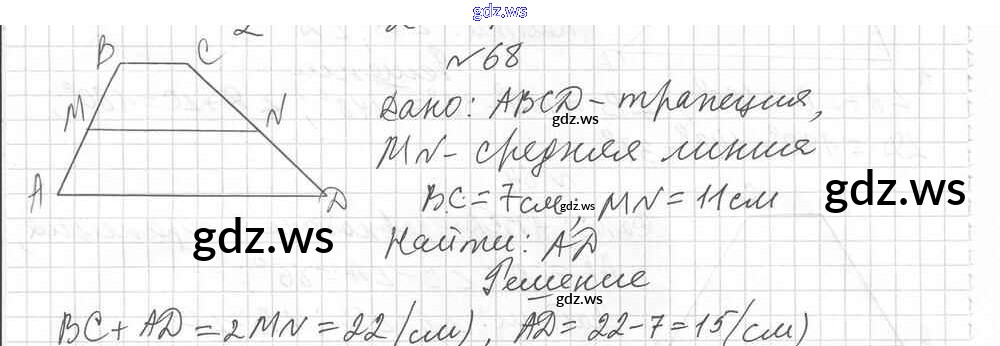 gdz.ws
№68
B C
Дано: ABCD - трапеция,
gdz.ws
M N
MN - средняя линия
A D
BC = 7см; MN = 11см
gdz.ws
gdz.ws
gdz.ws
Найти: AD
Решение
gdz.ws
BC + AD = 2MN = 22 (см), AD = 22 - 7 = 15 (см)